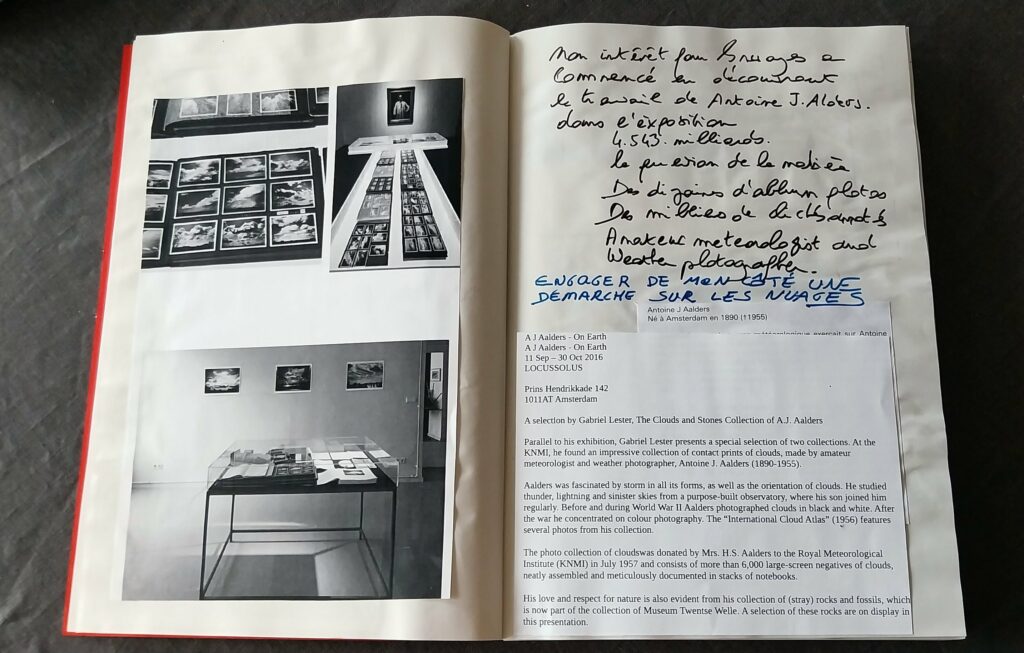 Mon intérêt pour les nuages a
commencé en découvrant
le travail de Antoine J. Alders.
dans l'exposition
4.543. milliards.
la question de la matière
Des dizaines d'album photos
Des milliers de clichés annotés
Amateur meteorologist and
Weather photographer.
ENGAGER DE MON CÔTÉ UNE
DÉMARCHE SUR LES NUAGES
Antoine J Aalders
Né à Amsterdam en 1890 (†1955)
météorologique exerçait sur Antoine
A J Aalders - On Earth
A J Aalders - On Earth
11 Sep – 30 Oct 2016
LOCUSSOLUS
Prins Hendrikkade 142
1011AT Amsterdam
A selection by Gabriel Lester, The Clouds and Stones Collection of A.J. Aalders
Parallel to his exhibition, Gabriel Lester presents a special selection of two collections. At the
KNMI, he found an impressive collection of contact prints of clouds, made by amateur
meteorologist and weather photographer, Antoine J. Aalders (1890-1955).
Aalders was fascinated by storm in all its forms, as well as the orientation of clouds. He studied
thunder, lightning and sinister skies from a purpose-built observatory, where his son joined him
regularly. Before and during World War II Aalders photographed clouds in black and white. After
the war he concentrated on colour photography. The “International Cloud Atlas” (1956) features
several photos from his collection.
The photo collection of cloudswas donated by Mrs. H.S. Aalders to the Royal Meteorological
Institute (KNMI) in July 1957 and consists of more than 6,000 large-screen negatives of clouds,
neatly assembled and meticulously documented in stacks of notebooks.
His love and respect for nature is also evident from his collection of (stray) rocks and fossils, which
is now part of the collection of Museum Twentse Welle. A selection of these rocks are on display in
this presentation.